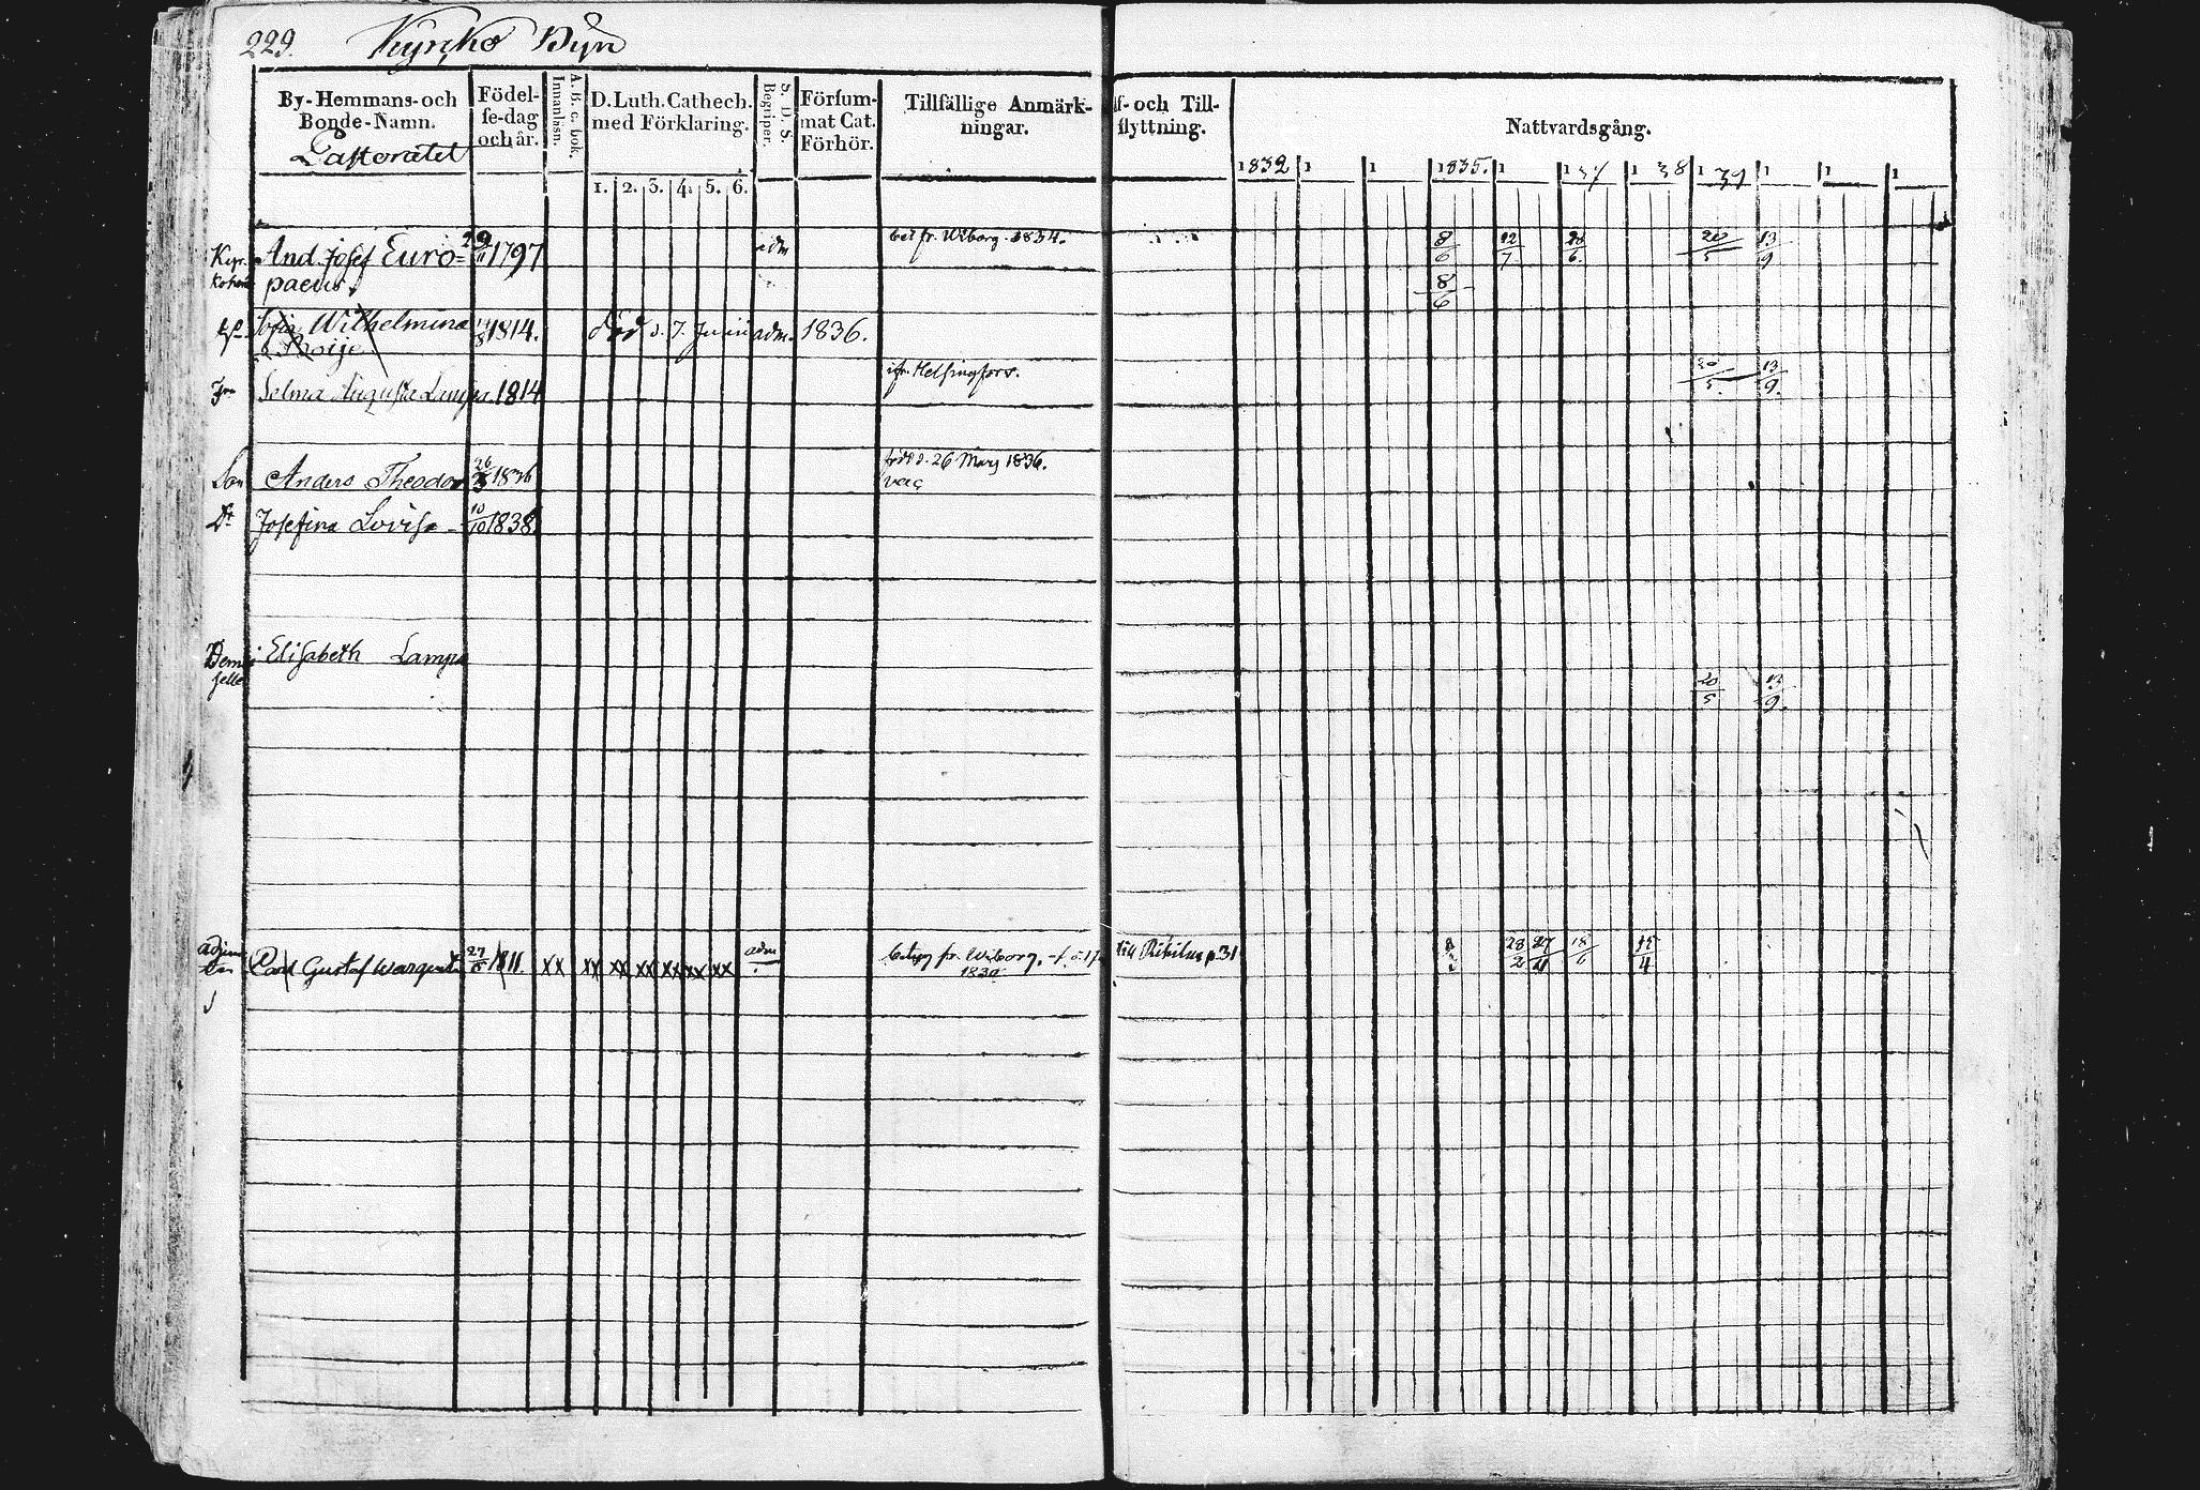 229. Kyrko Byn
By-Hemmans-och Bonde-Namn.
Pastoratet
Födel-se-dag och år.
A. B. c. bok. Innanläsn.
D. Luth. Cathech. med Förklaring.
1. 2. 3. 4. 5. 6.
S. D. S. Begriper.
Försum-mat Cat. Förhör.
Tillfällige Anmärk-ningar.
och Till-flyttning.
Nattvardsgång.
1832 1 1 1835. 1 1 37 1 38 1 39 1 1 1
Kyr-koherd And. Josef Euro= 29/11 1797 adm fr. Wiborg 1834. 8/6 12/7 20/6 20/5 13/9
paeus. 8/6
Sofia Wilhelmina 1814. död d. 7. Junii adm. 1836.
Selma Augusta 1814 ifr. Helsingfors. 20/5 13/9
Son Anders Theodor 1836 född d. 26 Mars 1836.
vac
Dt Josefina Lovisa 10/10 1838.
Demoi-selle Elisabeth Lampa 20/5 13/9
Carl Gustaf 1811. xx xx xx xx xx xx xx adm fr. Wiborg. till p 31 28/2 27/4 18/6 15/4